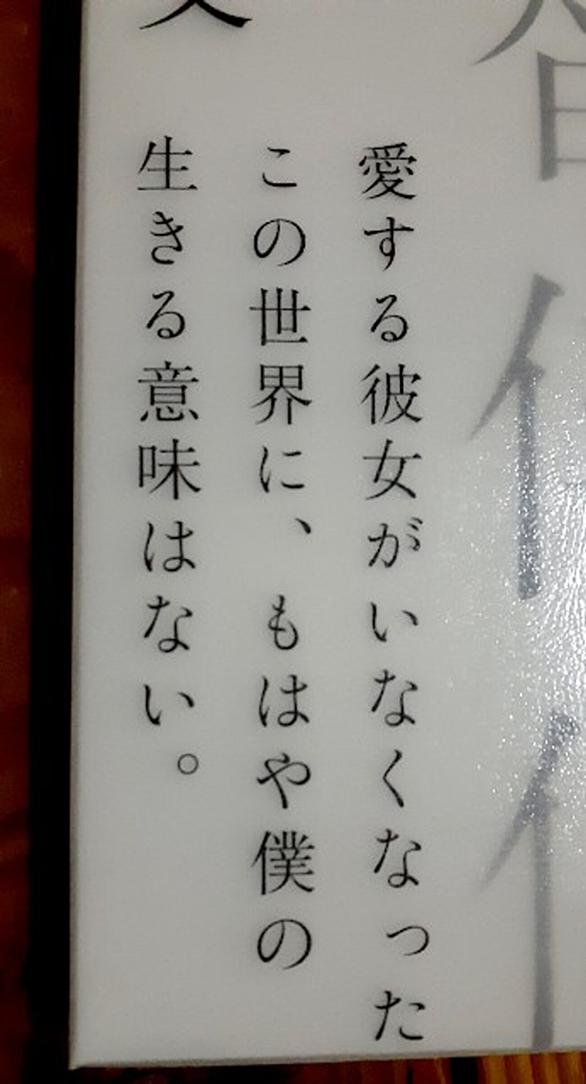 愛する彼女がいなくなった
この世界に、もはや僕の
生きる意味はない。